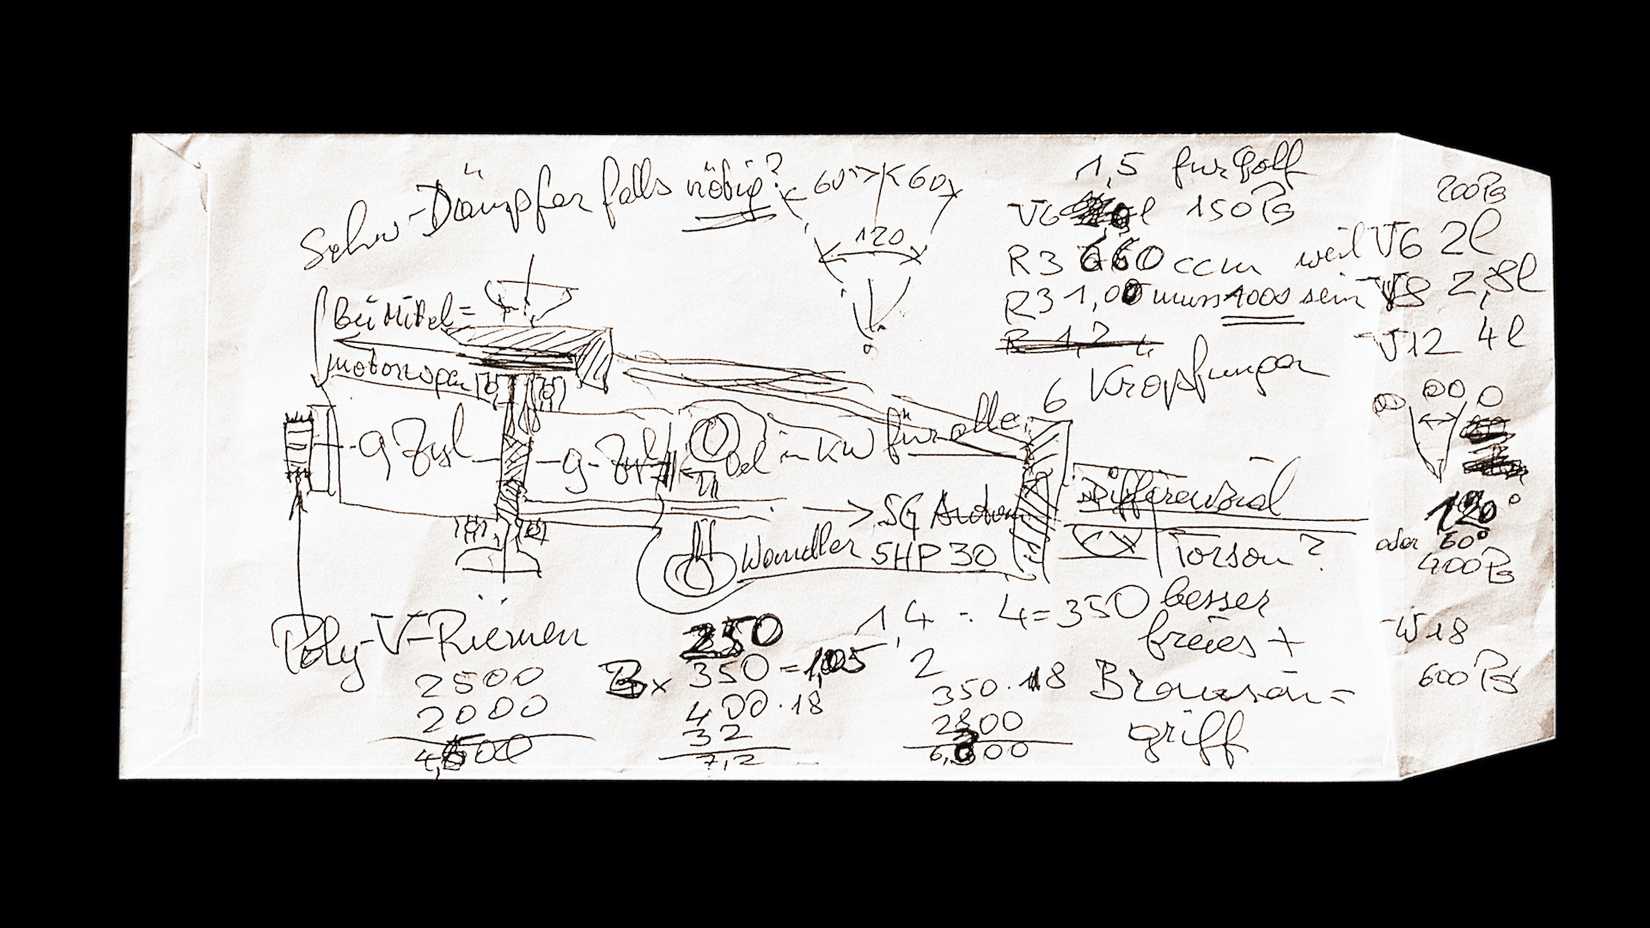 Schw-Dämpfer falls nötig?
60° 60
120
1,5 für Golf
V6 l 150 PS
R3 660 ccm weil V6 2l
R3 1,00 muss 1000 sein V8 2,8l
R 1,2 L
V12 4l
200 PS
6 Kröpfungen
Bei Mittel=
motor
9 Zyl 9-Zyl
Oel in KW für alle
→ SG
Wandler 5HP30
Differenzial
Torson?
besser
freies +
Brainsain=
griff
120°
oder 60°
400 PS
W18
600 PS
Poly-V-Riemen
2500
2000
4,500
250
3x 350 = 1,05
400·18
32
7,2
1,4 : 4 = 350
2
350·18
2800
6,300